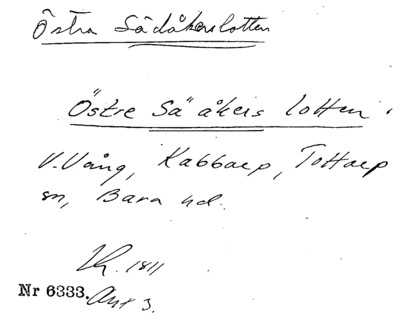 Östra Sädåkerslotten
Östre Sä"åkers lotten
V. Vång, Kabbarp, Tottarp
sn, Bara hd.
Lh. 1811
Nr 6333. Akt 3.